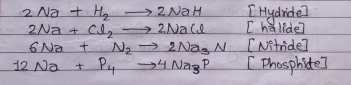 2Na + H₂ ⟶ 2NaH [Hydride]
2Na + Cl₂ ⟶ 2NaCl [halide]
6Na + N₂ ⟶ 2Na₃N [Nitride]
12Na + P₄ ⟶ 4Na₃P [Phosphide]